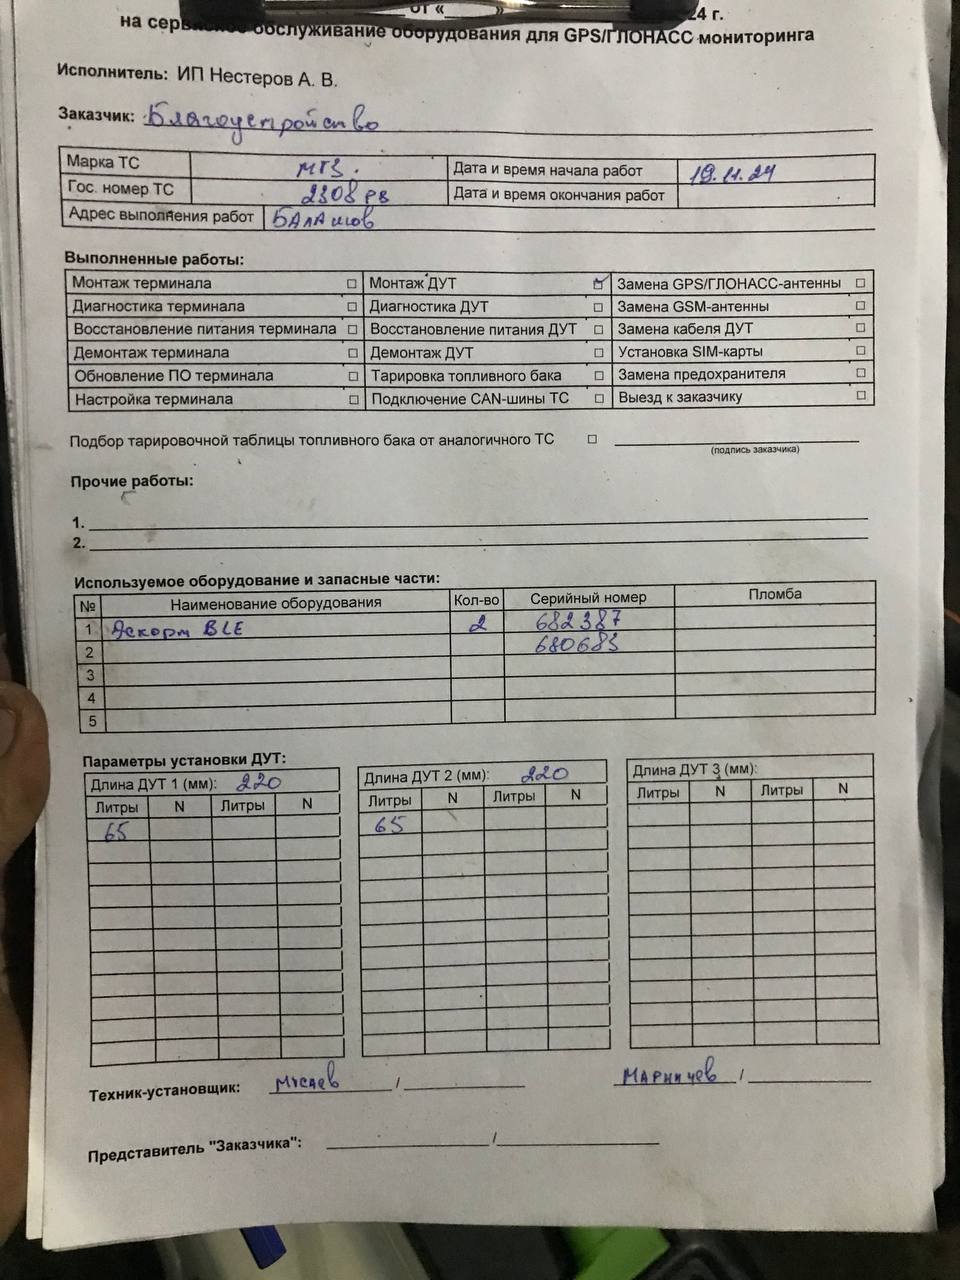 от «____» 24 г.
на сервисное обслуживание оборудования для GPS/ГЛОНАСС мониторинга
Исполнитель: ИП Нестеров А. В.
Заказчик: Благоустройство
Марка ТС МТЗ. Дата и время начала работ 19.11.24
Гос. номер ТС 2308 рв Дата и время окончания работ
Адрес выполнения работ БАлАшов
Выполненные работы:
Монтаж терминала ☐ Монтаж ДУТ ☑ Замена GPS/ГЛОНАСС-антенны ☐
Диагностика терминала ☐ Диагностика ДУТ ☐ Замена GSM-антенны ☐
Восстановление питания терминала ☐ Восстановление питания ДУТ ☐ Замена кабеля ДУТ ☐
Демонтаж терминала ☐ Демонтаж ДУТ ☐ Установка SIM-карты ☐
Обновление ПО терминала ☐ Тарировка топливного бака ☐ Замена предохранителя ☐
Настройка терминала ☐ Подключение CAN-шины ТС ☐ Выезд к заказчику ☐
Подбор тарировочной таблицы топливного бака от аналогичного ТС ☐
(подпись заказчика)
Прочие работы:
1.
2.
Используемое оборудование и запасные части:
№ Наименование оборудования Кол-во Серийный номер Пломба
1 Эскорт BLE 2 682387
2 680683
3
4
5
Параметры установки ДУТ:
Длина ДУТ 1 (мм): 220 Длина ДУТ 2 (мм): 220 Длина ДУТ 3 (мм):
Литры N Литры N Литры N Литры N Литры N Литры N
65 65
Техник-установщик: Мусаев / Марничев /
Представитель "Заказчика": /